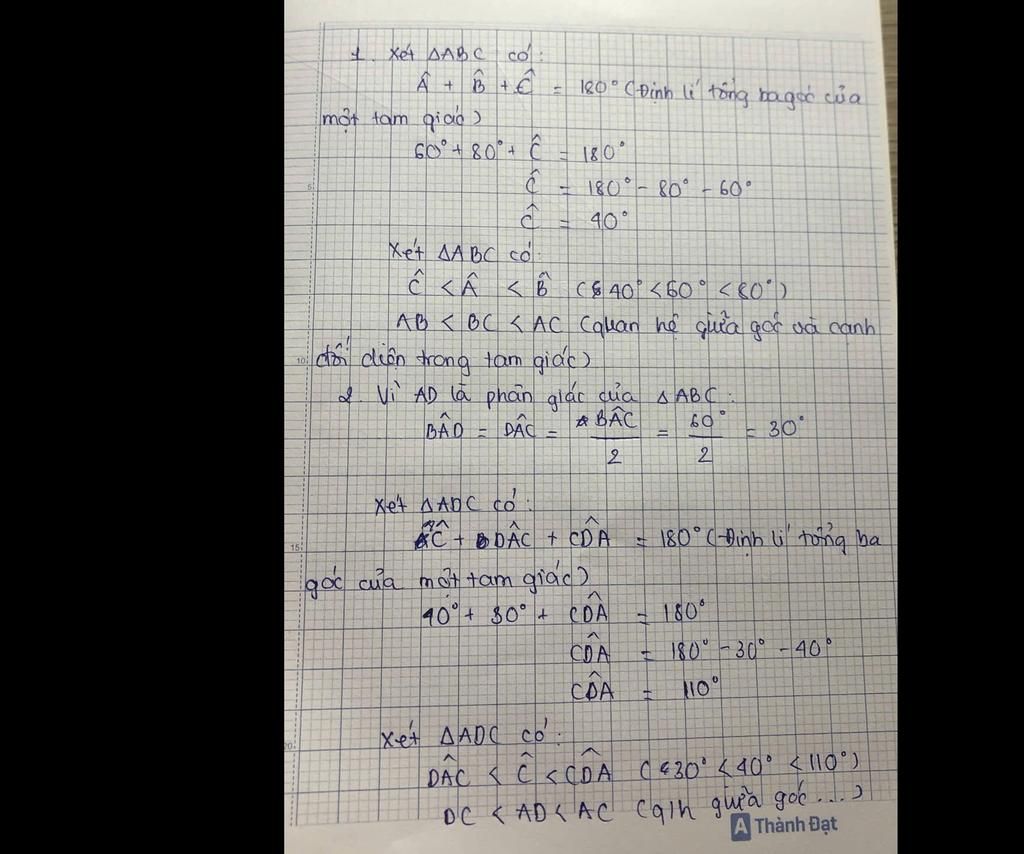 1. Xét ΔABC có:
Â + B̂ + Ĉ = 180° (Định lí tổng ba góc của
một tam giác)
60° + 80° + Ĉ = 180°
Ĉ = 180° - 80° - 60°
Ĉ = 40°
Xét ΔABC có:
Ĉ < Â < B̂ (40° < 60° < 80°)
AB < BC < AC (quan hệ giữa góc và cạnh
đối diện trong tam giác)
2. Vì AD là phân giác của ΔABC:
BÂD = DÂC = BÂC/2 = 60°/2 = 30°
Xét ΔADC có:
Ĉ + DÂC + CD̂A = 180° (Định lí tổng ba
góc của một tam giác)
40° + 30° + CD̂A = 180°
CD̂A = 180° - 30° - 40°
CD̂A = 110°
Xét ΔADC có:
DÂC < Ĉ < CD̂A (30° < 40° < 110°)
DC < AD < AC (q/h giữa góc....)
A Thành Đạt